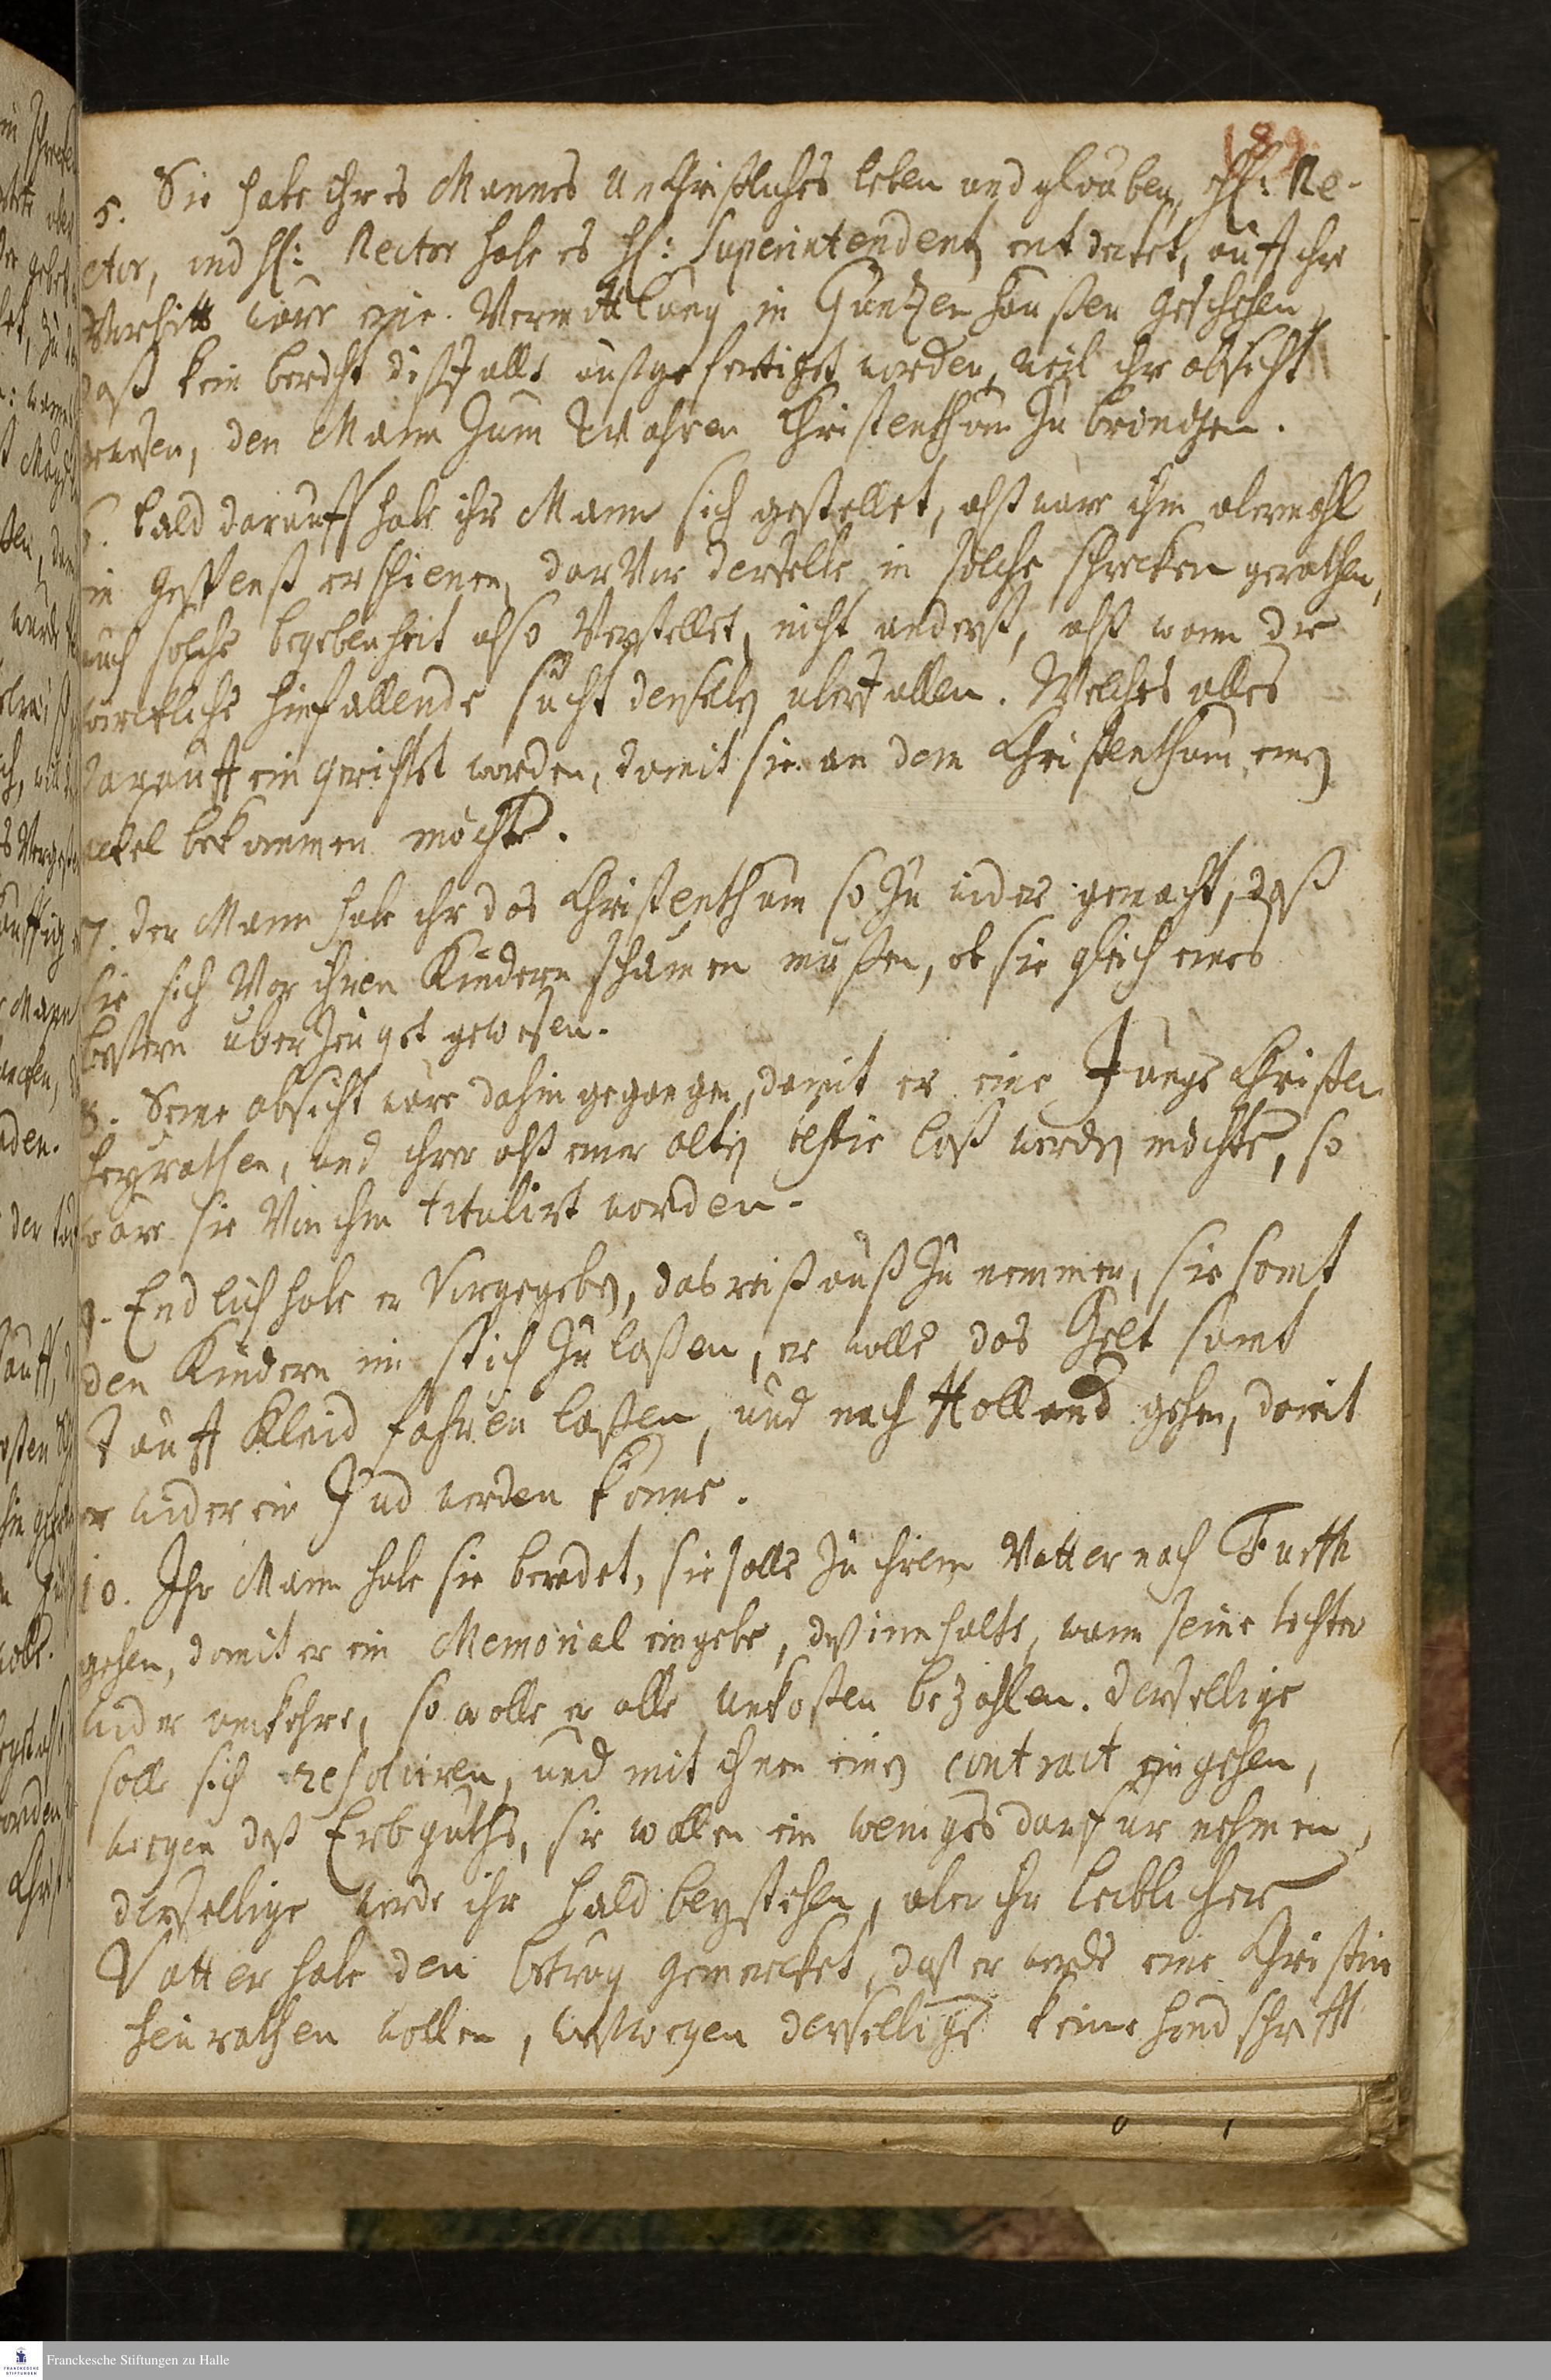 189.
5. Sie habe ihres Mannes Unchristliches leben und glauben, H: Re-
ctor, und H: Rector habe es H: Superintendenten entdecket, auff ihr
Vorbitt wäre eine Vermittlung in Guntzenhaußen geschehen,
daß kein bericht dißfalls außgefertiget worden, weil ihr absicht
gewesen, den Mann zum wahren Christenthum zu bringen.
6. bald darauff habe ihr Mann sich gestellet, alß wäre ihm abermahl
ein Gespenst erschienen, darvor derselbe in solche schrecken gerathen,
auch solche begebenheit also Verstellet, nicht anderst, alß wann die
würckliche hinfallende sucht denselben uberfallen. Welches alles
darauff ein gerichtet worden, damit sie an dem Christenthum einen
eckel bekommen möchte.
7. der Mann habe ihr das Christenthum so zu wider gemacht, daß
sie sich Vor ihren Kindern schämen müßen, ob sie gleich eines
bessern uberzeuget gewesen.
8. Seine absicht wäre dahin gegangen, damit er eine Junge Christin
heyrathen, und ihrer alß einer alten loß werden möchte, so
wäre sie Von ihm titulirt worden.
9. Endlich habe er Vorgegeben, das reißauß zu nemmen, sie samt
den Kindern im stich zu laßen, er wolle das Gelt samt
Tauff Kleid fahren laßen, und nach Holland gehen, damit
er wider ein Jud werden könne.
10. Ihr Mann habe sie beredet, sie solle zu ihrem Vatter nach Furth
gehen, damit er ein Memorial eingebe, deß innhalts, wann seine tochter
wider umkehre, so wolle er alle Unkosten bezahlen. dersellige
solle sich resolviren, und mit ihnen einen contract eingehen,
wegen deß Erbguths, sie wollen ein weniges darfür nehmen,
dersellige werde ihr bald beystehen, aber ihr leiblicher
Vatter habe den betrug gemercket, daß er werde eine Christin
heurathen wollen, weßwegen dersellige keine handschrifft
Franckesche Stiftungen zu Halle